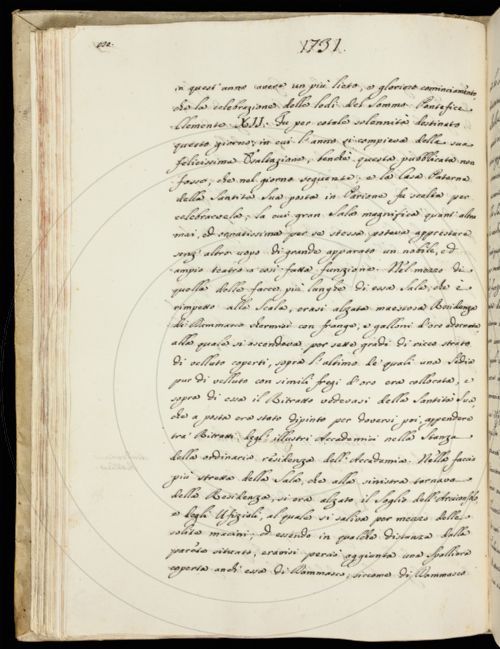 1731.
in quest'anno avere un più lieto, e glorioso cominciamento
che la celebrazione delle lodi del Sommo Pontefice
Clemente XII. Fu per cotale solennità destinato
questo giorno, in cui l'anno si compieva della sua
felicissima Esaltazione, benchè questa pubblicata non
fosse, che nel giorno seguente; e la Casa Paterna
della Santità Sua posta in Parione fu scelta per
celebrarvela; la cui gran Sala magnifica quant'altra
mai, ed ornatissima per se stessa poteva apprestare
senz'altro uopo di grande apparato un nobile, ed
ampio teatro a così fatta funzione. Nel mezzo di
quella delle facce più lunghe di essa Sala, che è
rimpetto alla Scala, erasi alzata maestosa Residenza
di Dommasco Chermisi con frange, e galloni d'oro adornata,
alla quale si ascendeva per sette gradi di ricco strato
di velluto coperti, sopra l'ultimo de' quali una Sedia
pur di velluto con simili fregi d'oro era collocata, e
sopra di essa il Ritratto vedevasi della Santità Sua,
che a posta era stato dipinto per doversi poi appendere
tra' Ritratti degl'illustri Accademici nella Stanza
della ordinaria residenza dell'Accademia. Nella faccia
più stretta della Sala, che alla sinistra tornava
della Residenza, si era alzato il Soglio dell'Arciconsolo,
e degli Ufiziali, al quale si saliva per mezzo delle
solite macini; ed essendo in qualche distanza dalla
parete situato, eravisi perciò aggiunta una Spalliera
coperta anch'essa di Dommasco, siccome di Dommasco